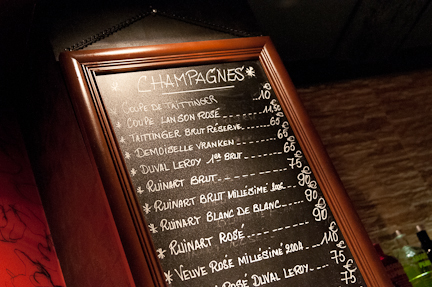 CHAMPAGNES*
* COUPE DE TAITTINGER ........ 10€
* COUPE LANSON ROSÉ ........ 11€
* TAITTINGER BRUT RÉSERVE ........ 65€
* DEMOISELLE VRANKEN ........ 65€
* DUVAL LEROY 1er BRUT ........ 65€
* RUINART BRUT ........ 75€
* RUINART BRUT MILLÉSIME ........ 90€
* RUINART BLANC DE BLANC ........ 90€
* RUINART ROSÉ ........ 90€
* VEUVE ROSÉ MILLÉSIME 2004 ... 110€
ROSÉ DUVAL LEROY ........ 75€